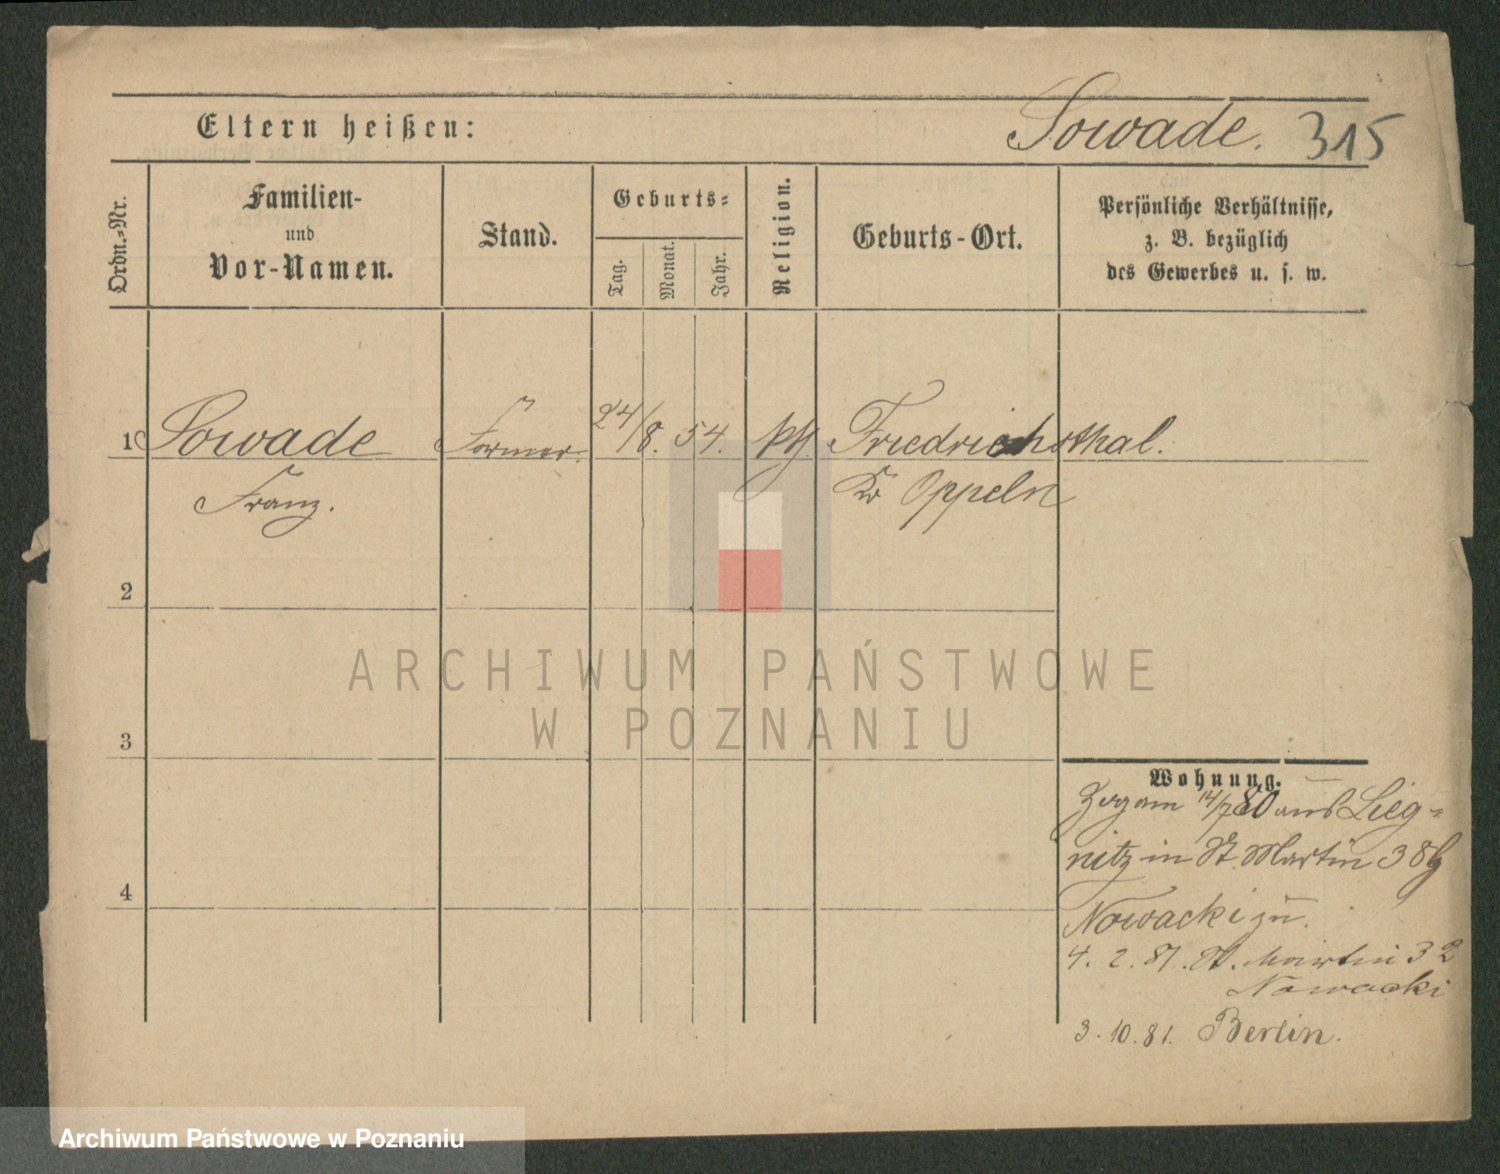 Eltern heißen:
Sowade. 315
Ordn.=Nr.
Familien-
und
Vor-Namen.
Stand.
Geburts=
Tag.
Monat.
Jahr.
Religion.
Geburts-Ort.
Persönliche Verhältnisse,
z. B. bezüglich
des Gewerbes u. s. w.
1 Sowade Former. 24/8. 54. kth. Friedrichsthal.
Franz. Kr Oppeln
2
3
4
Wohnung.
Zog am 14/7 80 aus Lieg=
nitz in St. Martin 38 b
Nowacki zu.
4. 2. 81. St. Martin 32
Nowacki
3. 10. 81. Berlin.
ARCHIWUM PAŃSTWOWE
W POZNANIU
Archiwum Państwowe w Poznaniu